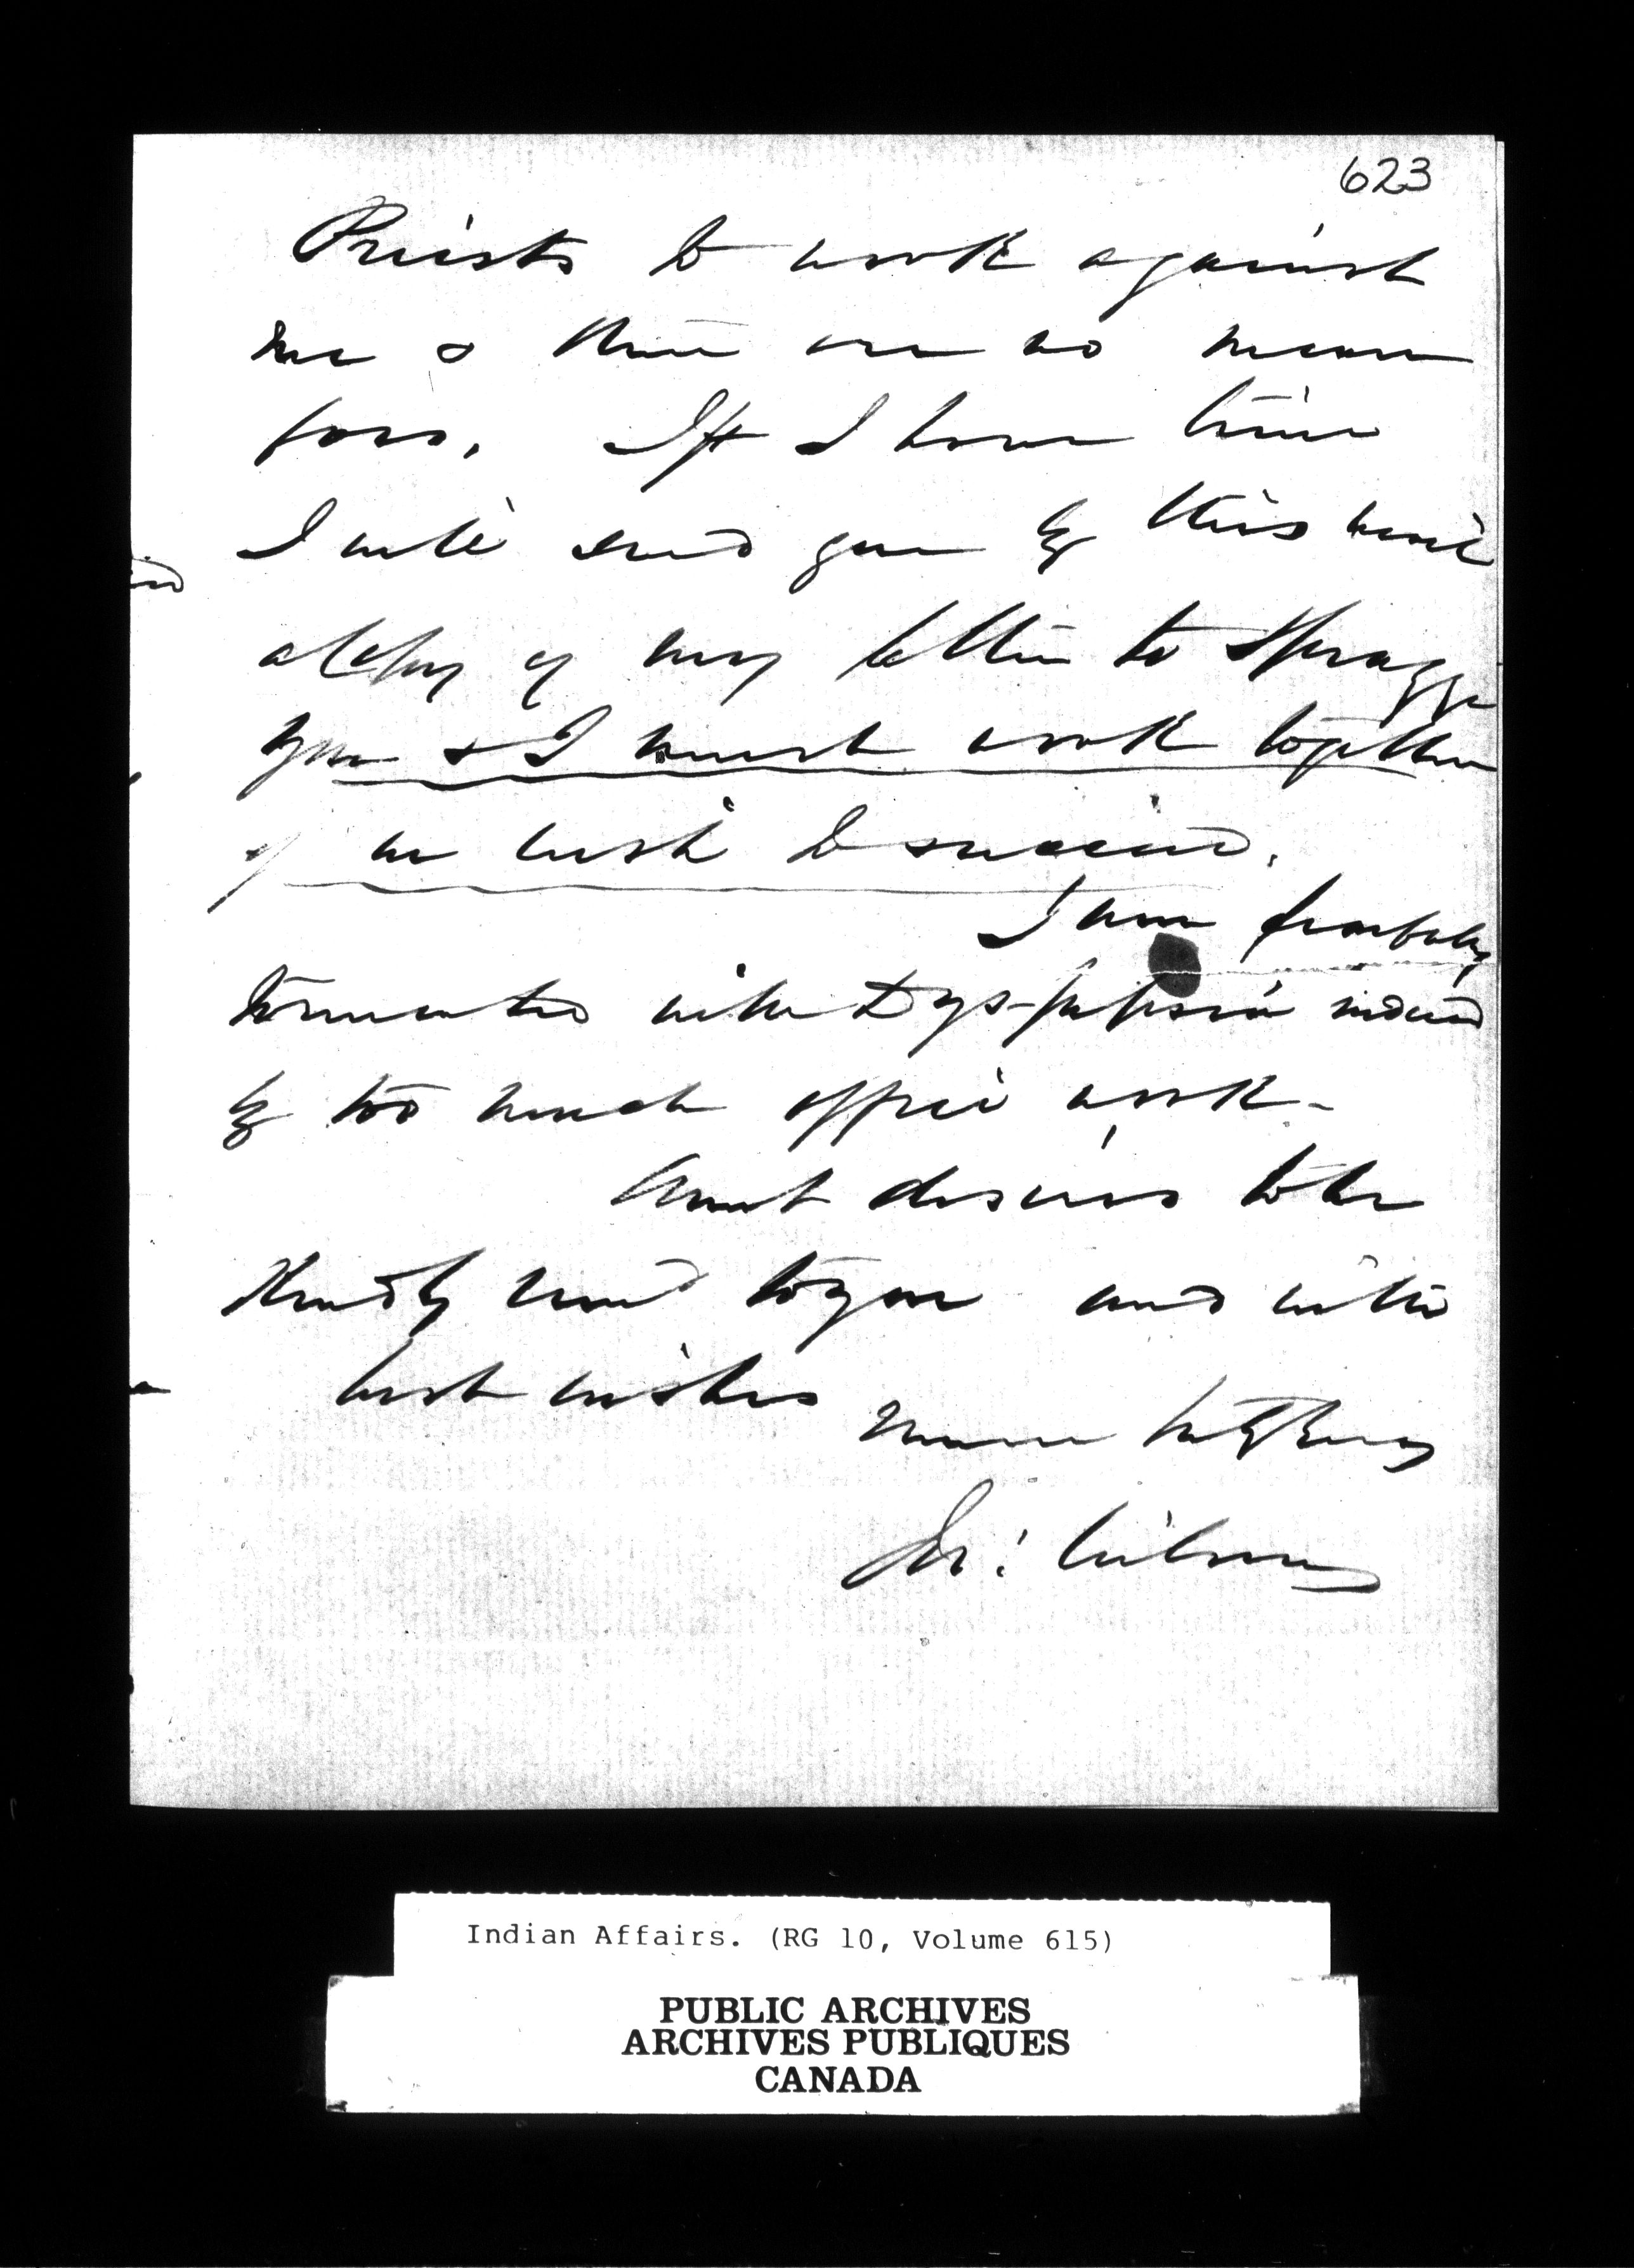 623
Priests to work against
me & these are no mean
foes. If I have time
I will send you by this mail
a copy of my letter to Spragge
you & I must work together
if we wish to succeed.
I am
tormented with Dys-pepsia induced
by too much office work -
desires to be
kindly to you and with
best wishes
Wilson
Indian Affairs. (RG 10, Volume 615)
PUBLIC ARCHIVES
ARCHIVES PUBLIQUES
CANADA